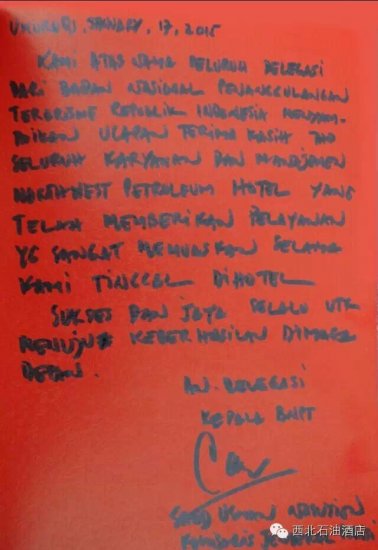 URUMQI, JANUARY, 17, 2015
KAMI ATAS NAMA SELURUH DELEGASI
DARI BADAN NASIONAL PENANGGULANGAN
TERORISME REPUBLIK INDONESIA MENYAM-
PAIKAN UCAPAN TERIMA KASIH
SELURUH KARYAWAN DAN MANAJEMEN
NORTHWEST PETROLEUM HOTEL YANG
TELAH MEMBERIKAN PELAYANAN
YG SANGAT MEMUASKAN SELAMA
KAMI TINGGAL DIHOTEL
SUKSES DAN JAYA SELALU UTK
MENUJU KEBERHASILAN DIMASA
DEPAN.
AN. DELEGASI
KEPALA BNPT
SAUD USMAN NASUTION
KOMISARIS JENDERAL
西北石油酒店